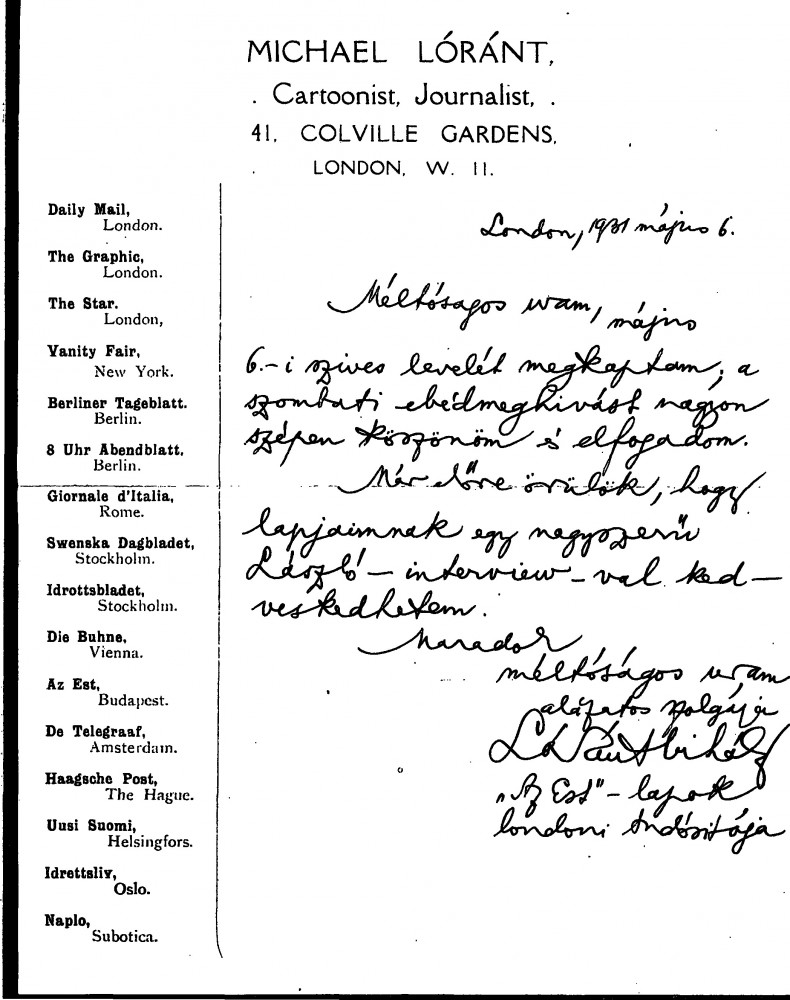 MICHAEL LÓRÁNT,
. Cartoonist, Journalist, .
41, COLVILLE GARDENS,
LONDON, W. 11.
Daily Mail,
London.
The Graphic,
London.
The Star.
London,
Vanity Fair,
New York.
Berliner Tageblatt.
Berlin.
8 Uhr Abendblatt,
Berlin.
Giornale d'Italia,
Rome.
Swenska Dagbladet,
Stockholm.
Idrottsbladet,
Stockholm.
Die Buhne,
Vienna.
Az Est,
Budapest.
De Telegraaf,
Amsterdam.
Haagsche Post,
The Hague.
Uusi Suomi,
Helsingfors.
Idrettsliv,
Oslo.
Naplo,
Subotica.
London, 1931 május 6.
Méltóságos uram, május
6.-i szives levelét megkaptam; a
szombati ebédmeghivást nagyon
szépen köszönöm és elfogadom.
Már előre örülök, hogy
lapjaimnak egy nagyszerű
László-interview-val ked-
veskedhetem.
Maradok
méltóságos uram
alázatos szolgája
Lóránt Mihály
„Az Est"-lapok
londoni tudósitója